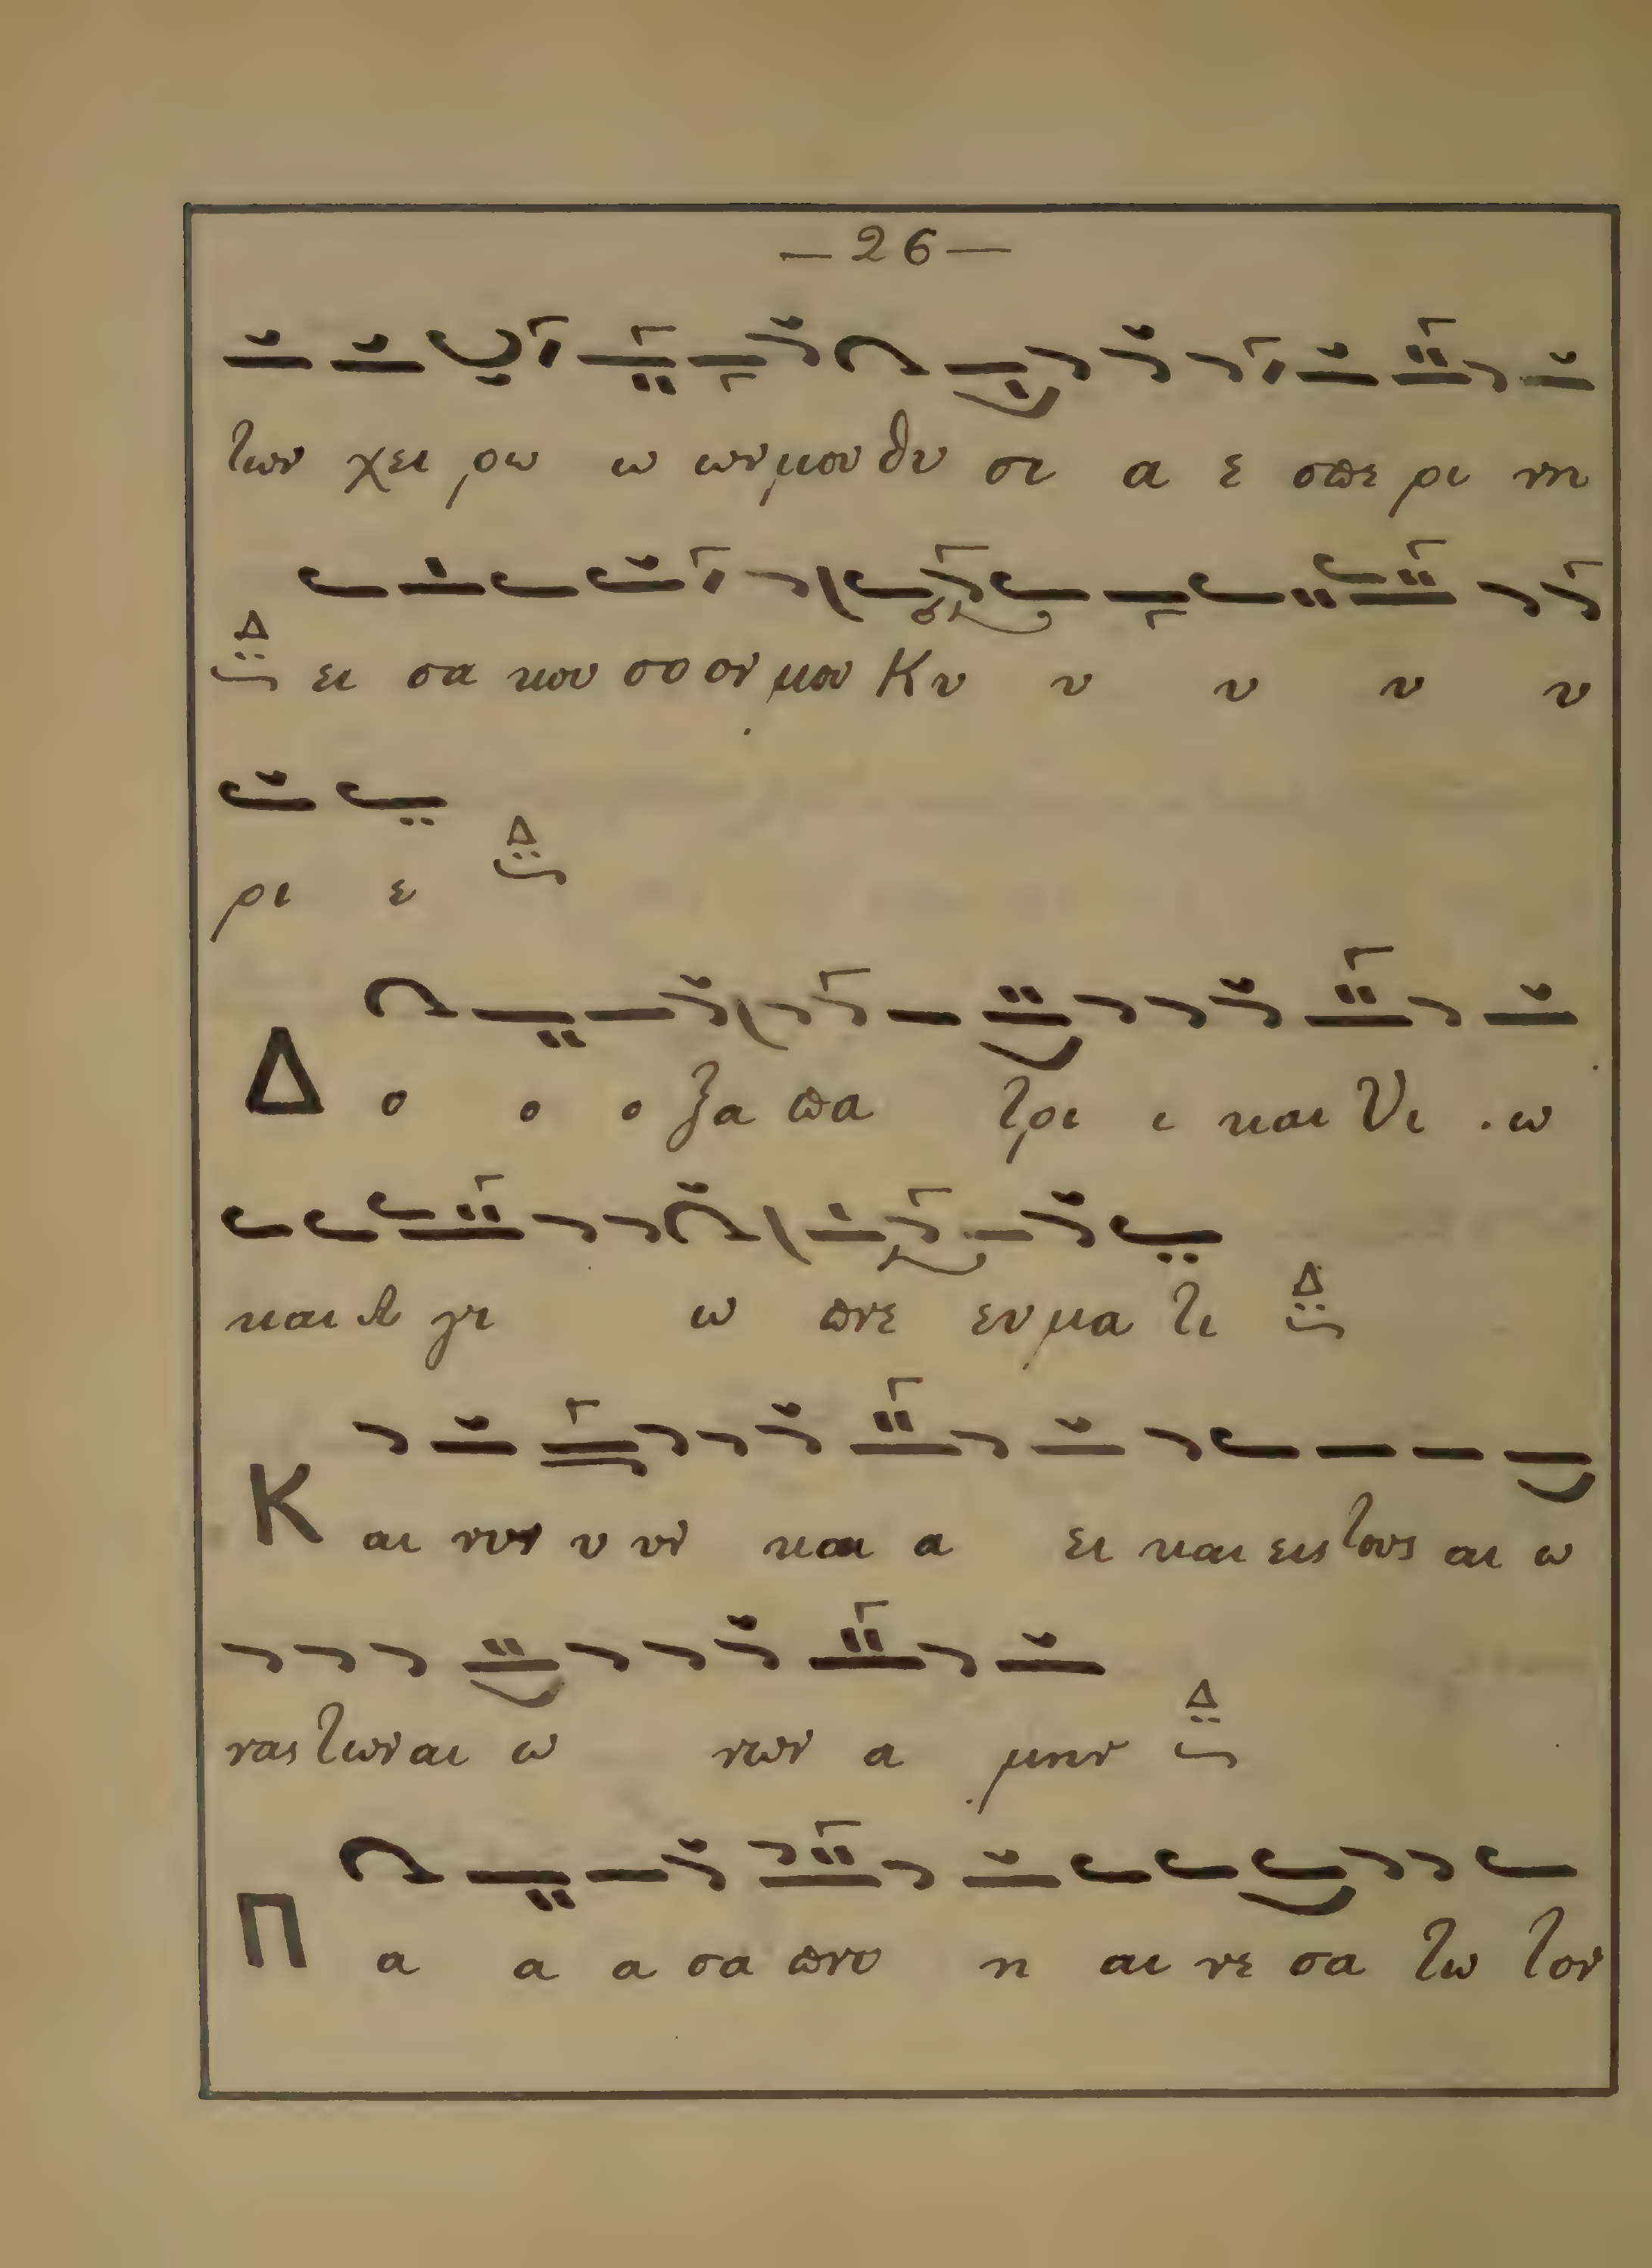 — 26 —
των χει ρω ω ων μου θυ σι α ε σπε ρι νη
Δ ει σα κου σο ον μου Κυ υ υ υ υ
ρι ε Δ
Δ ο ο ο ξα πα τρι ι και Υι ω
και Α γι ω πνε ευ μα τι Δ
Κ αι νυν υ υν και α ει και εις τους αι ω
νας των αι ω νων α μην Δ
Π α α α σα πνο η αι νε σα τω τον